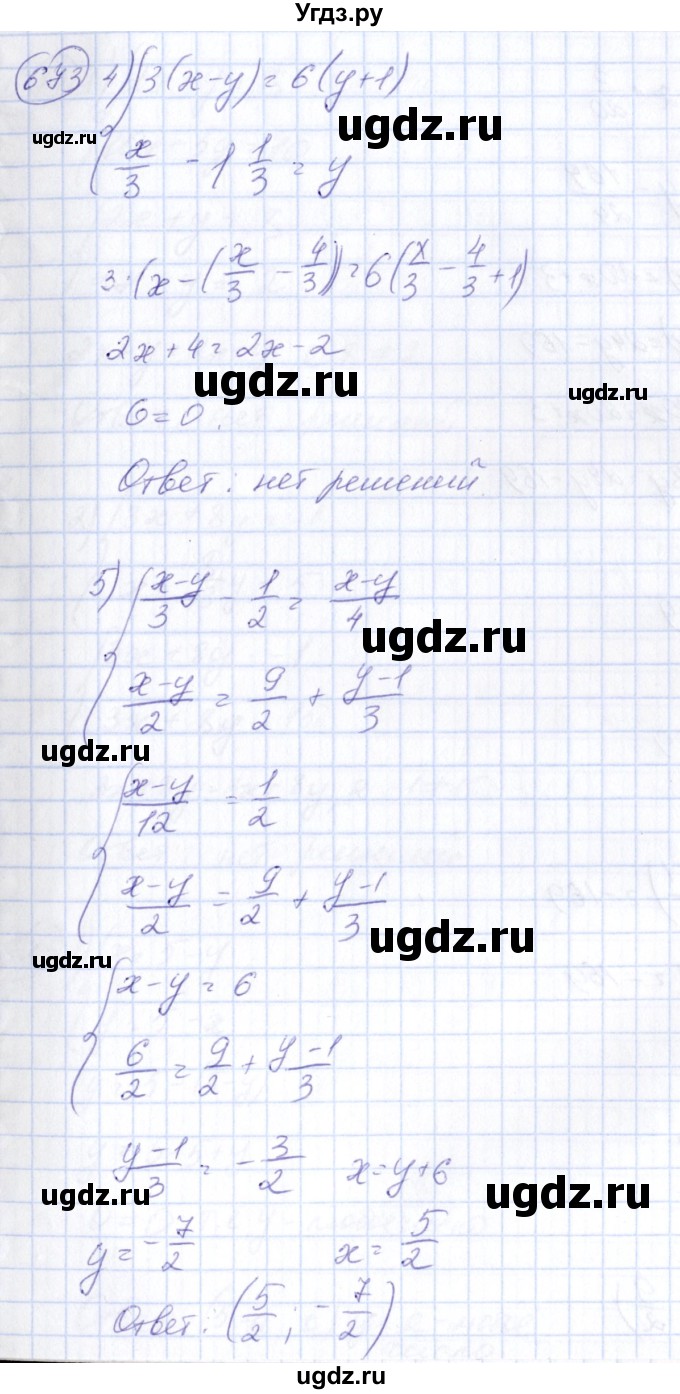 Угдз.ру
673 4) { 3(x-y) = 6(y+1)
ugdz.ru
ugdz.ru
x/3 - 1 1/3 = y
3·(x-(x/3 - 4/3)) = 6(x/3 - 4/3 + 1)
2x+4 = 2x-2
ugdz.ru
ugdz.ru
6=0.
Ответ: нет решений.
5) { (x-y)/3 - 1/2 = (x-y)/4
ugdz.ru
(x-y)/2 = 9/2 + (y-1)/3
ugdz.ru
{ (x-y)/12 = 1/2
(x-y)/2 = 9/2 + (y-1)/3
ugdz.ru
ugdz.ru
{ x-y = 6
6/2 = 9/2 + (y-1)/3
(y-1)/3 = -3/2 x=y+6
ugdz.ru
ugdz.ru
y = -7/2 x = 5/2
Ответ: (5/2; -7/2)
ugdz.ru